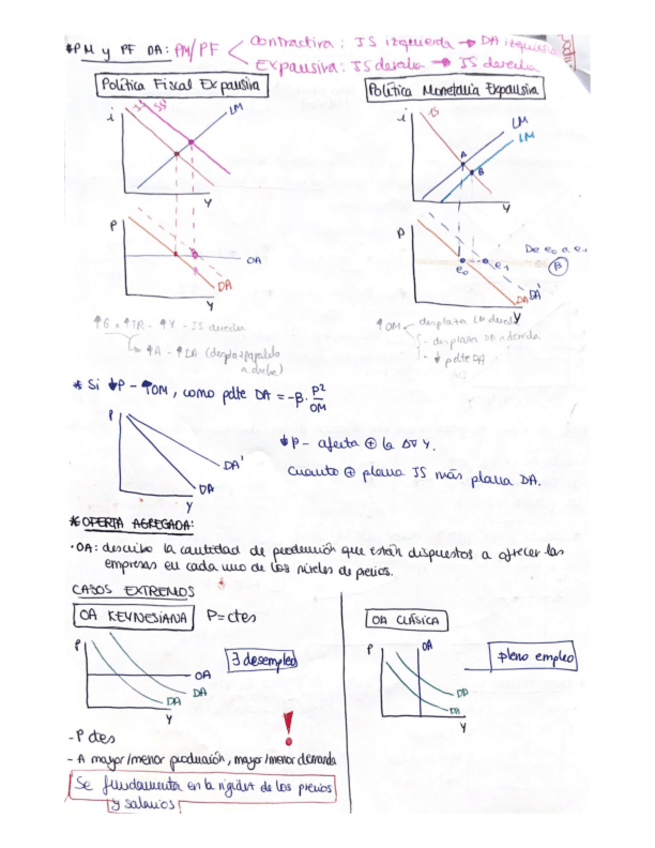 *PM y PF DA: PM/PF
Contractiva: IS izquierda → DA izquierda
Expansiva: IS derecha → IS derecha
Política Fiscal Expansiva
Política Monetaria Expansiva
i
IS
IS'
LM
Y
i
IS
LM
LM
A
B
Y
P
OA
DA
P
De e₀ a e₁
B
e₀
e₁
DA
DA'
Y
↑G = ↑TR - ↑Y - IS derecha
↑A - ↑DA (desplaz paralelo
a dcha)
↑OM
desplaza LM derecha
- desplaza DA a derecha
- ↓ pdte DA
* Si ↓P - ↑OM, como pdte DA = -β · P²/OM
P
DA'
DA
Y
↓P - afecta ⊕ la DA Y.
Cuanto ⊕ plana IS más plana DA.
* OFERTA AGREGADA:
· OA: describe la cantidad de producción que están dispuestos a ofrecer las
empresas en cada uno de los niveles de precios.
CASOS EXTREMOS
OA KEYNESIANA
P=ctes
OA CLÁSICA
P
∃ desempleo
OA
DA
DA
Y
P
OA
DA
DA
Y
pleno empleo
!
- P ctes
- A mayor/menor producción, mayor/menor demanda
Se fundamenta en la rigidez de los precios
y salarios